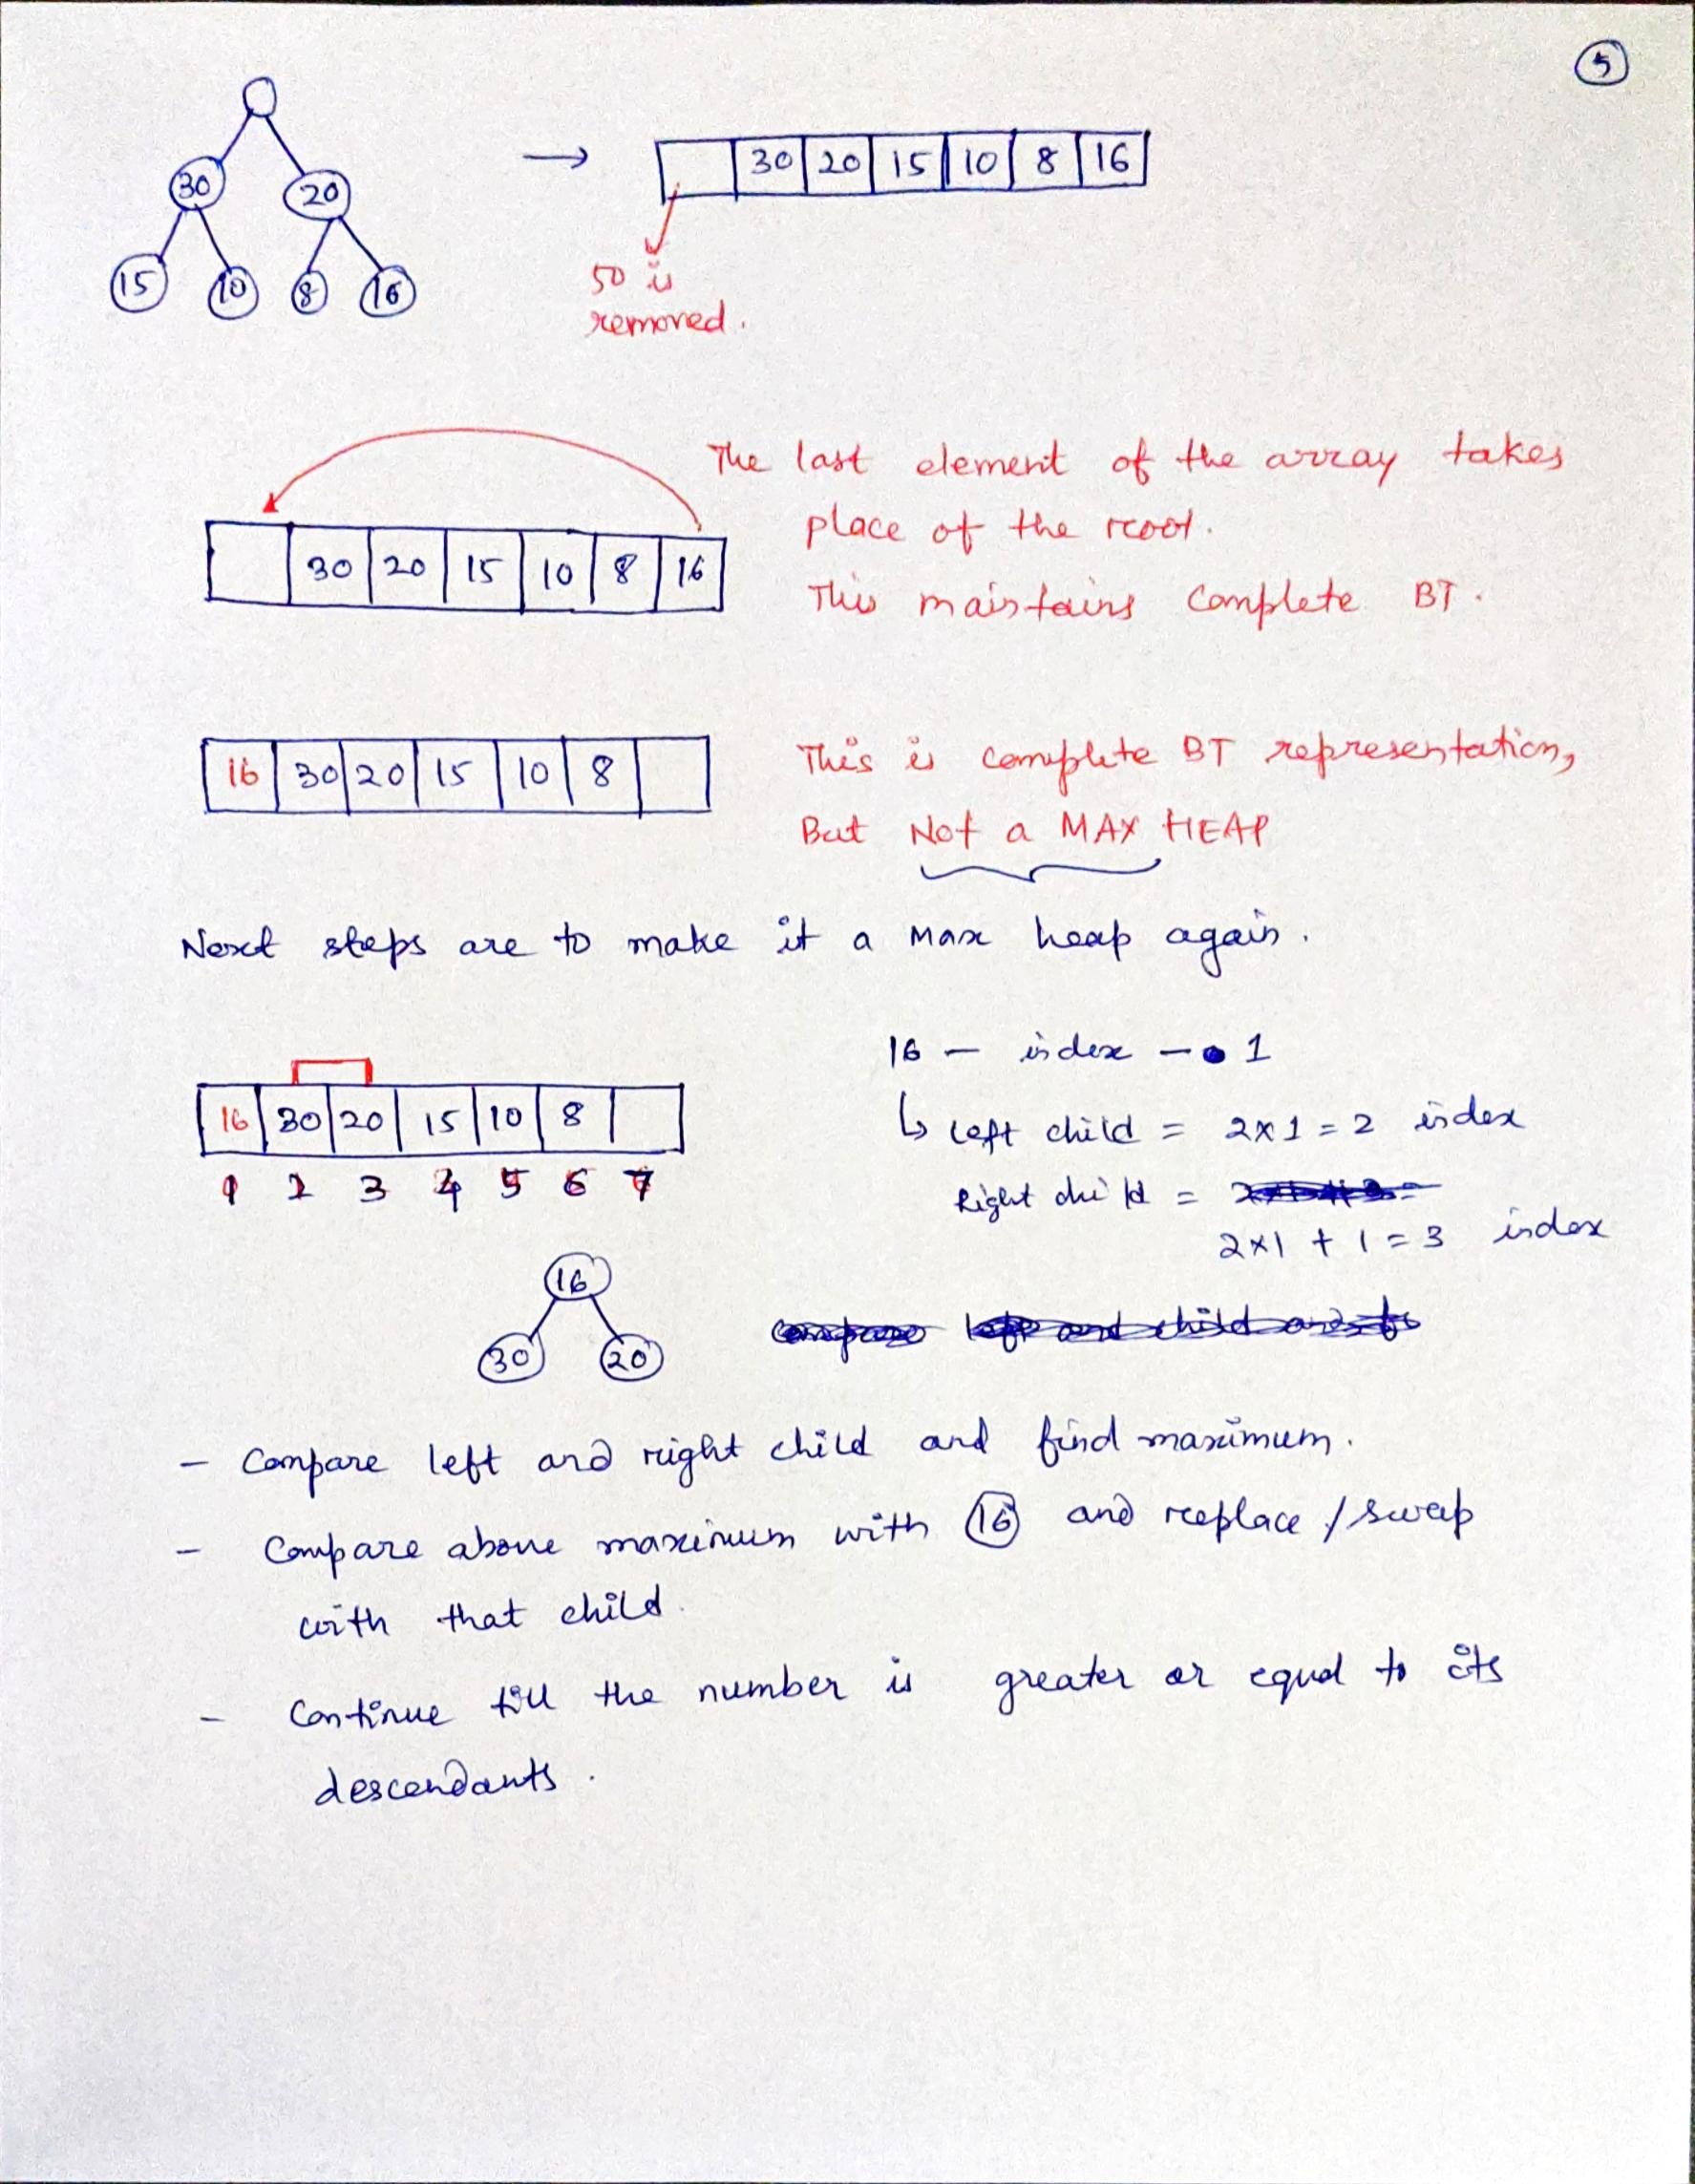 5
30 20
15 10 8 16
→ 30 20 15 10 8 16
50 is
removed.
The last element of the array takes
place of the root.
30 20 15 10 8 16
This maintains Complete BT.
16 30 20 15 10 8
This is complete BT representation,
But Not a MAX HEAP
Next steps are to make it a Max heap again.
16 — index — 1
16 30 20 15 10 8
↳ Left child = 2x1 = 2 index
1 2 3 4 5 6 7
Right child =
2x1 + 1 = 3 index
16
30 20
- Compare left and right child and find maximum.
- Compare above maximum with 16 and replace / swap
with that child.
- Continue till the number is greater or equal to its
descendants.